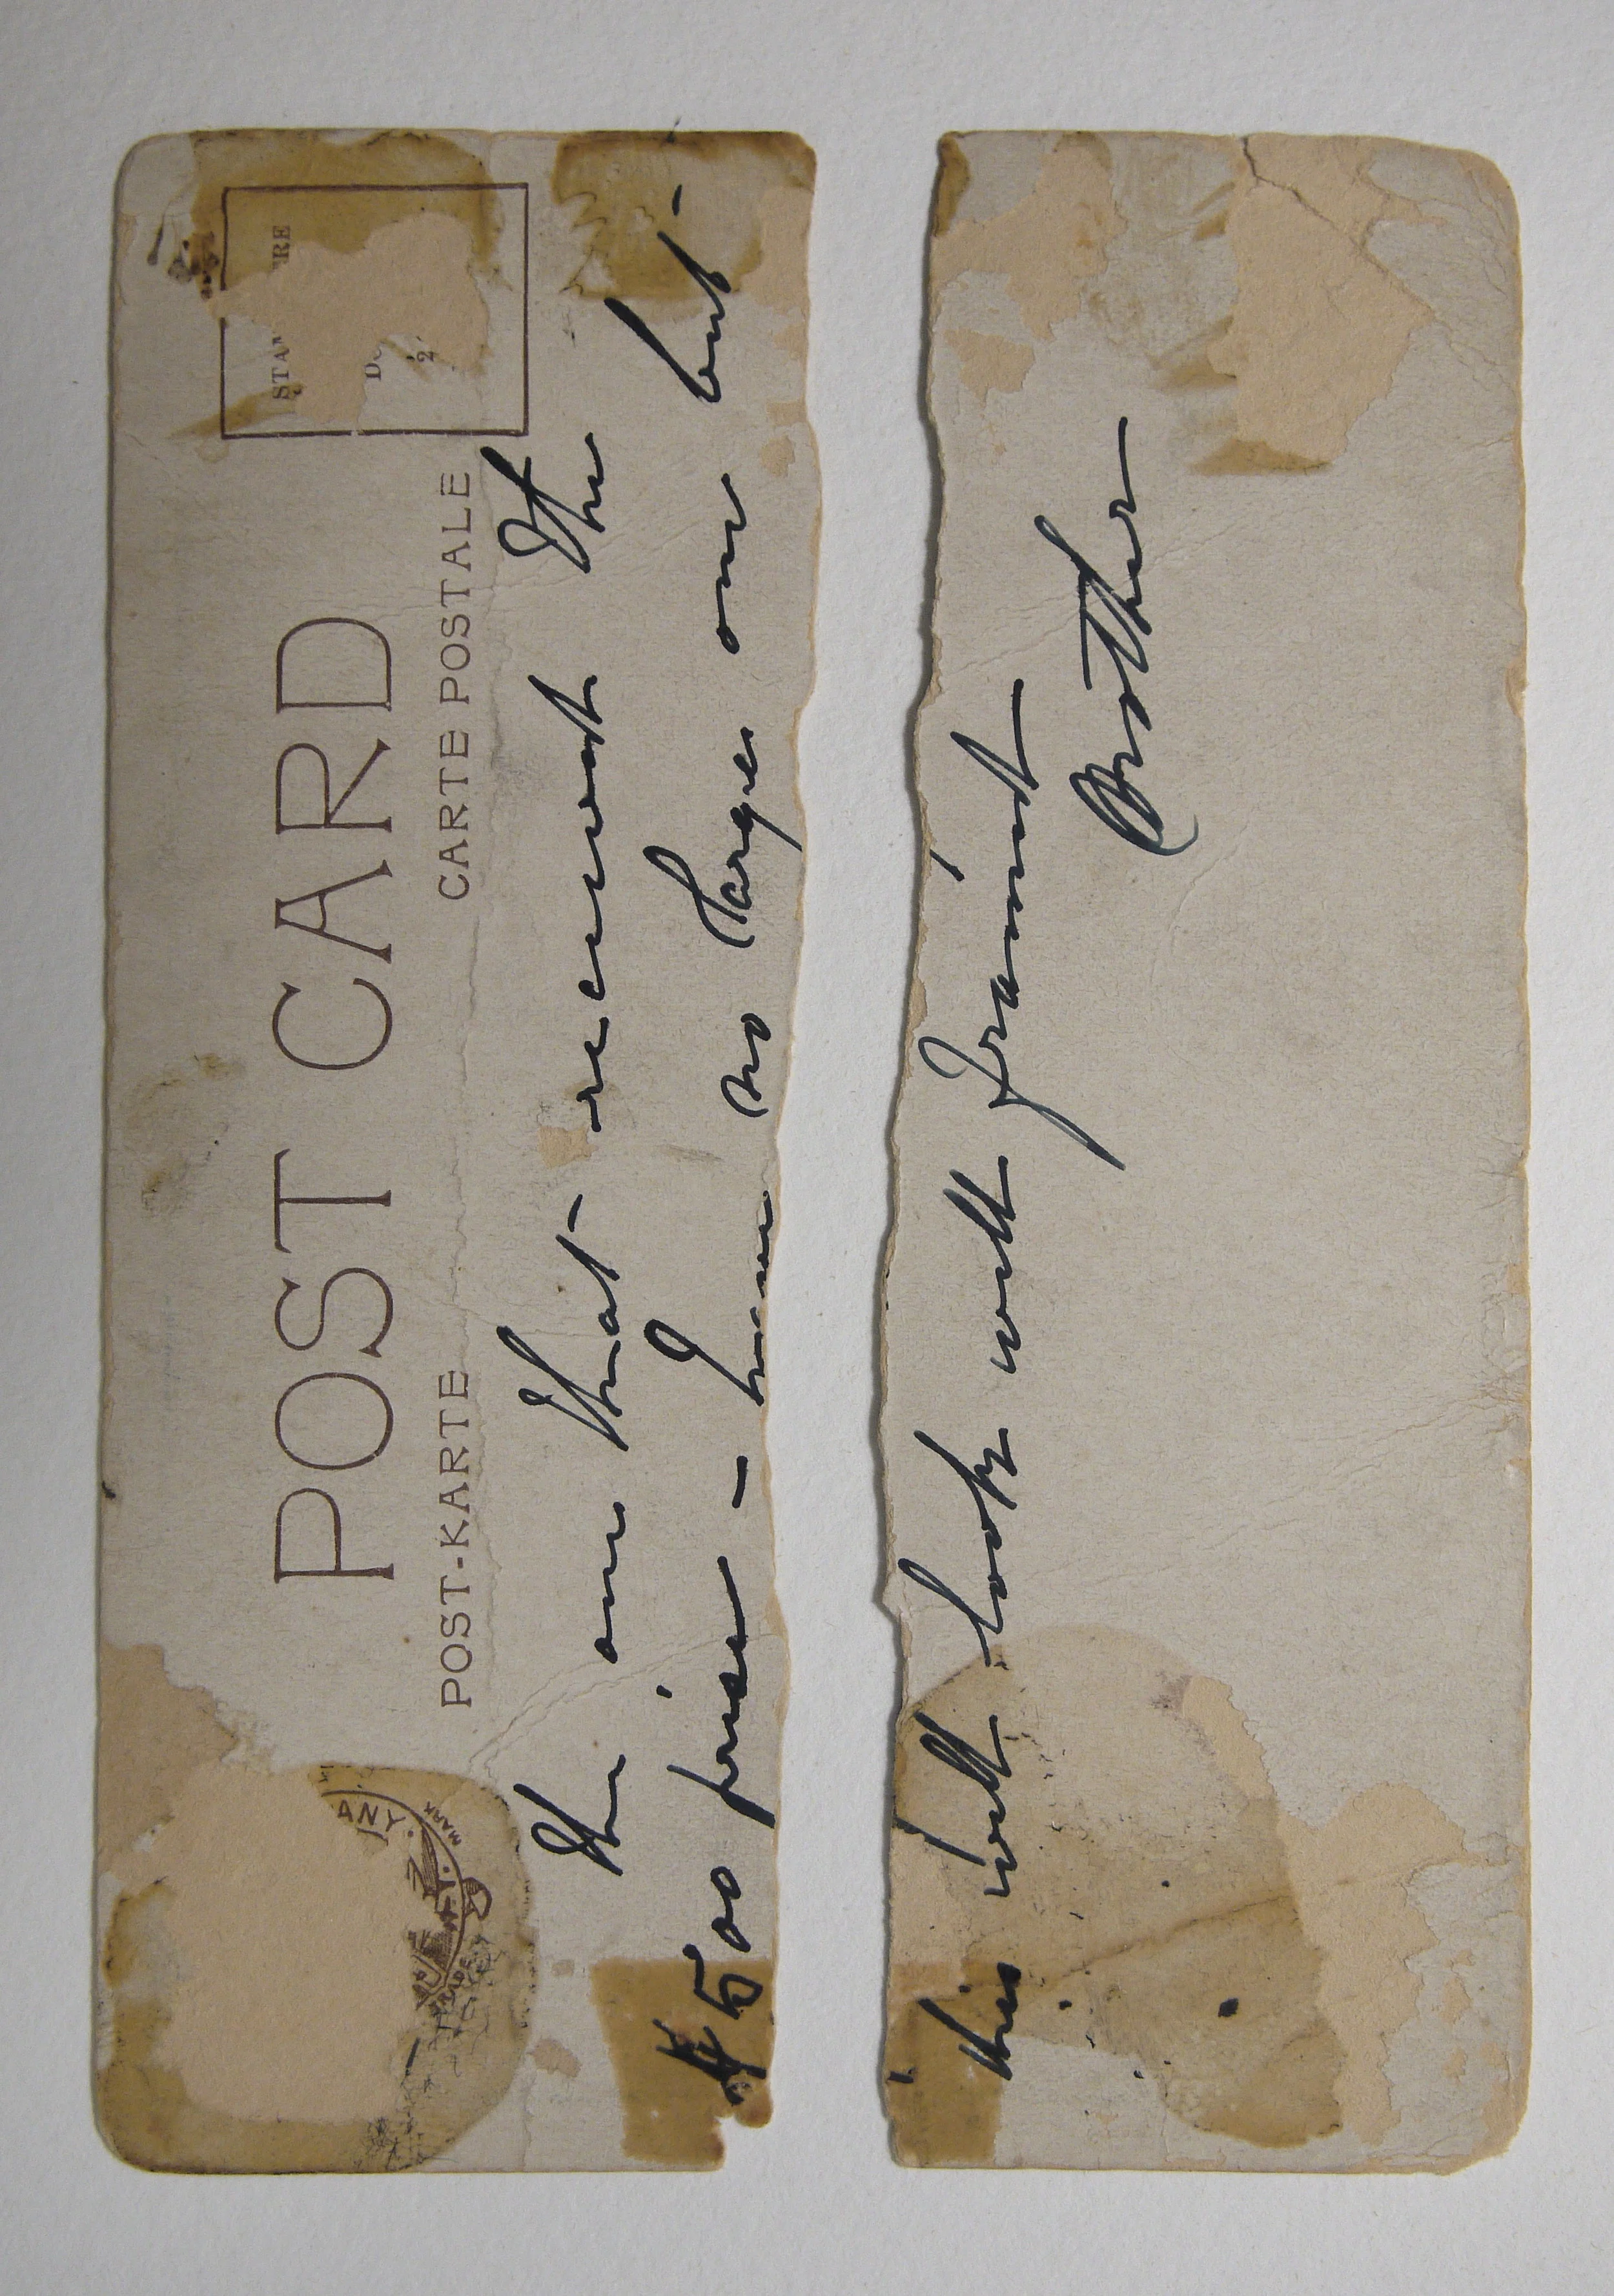 POST CARD
POST-KARTE CARTE POSTALE
ANY.
MARK
the one that received the
$500 prize - have no large one but -
this will look well framed
Brother